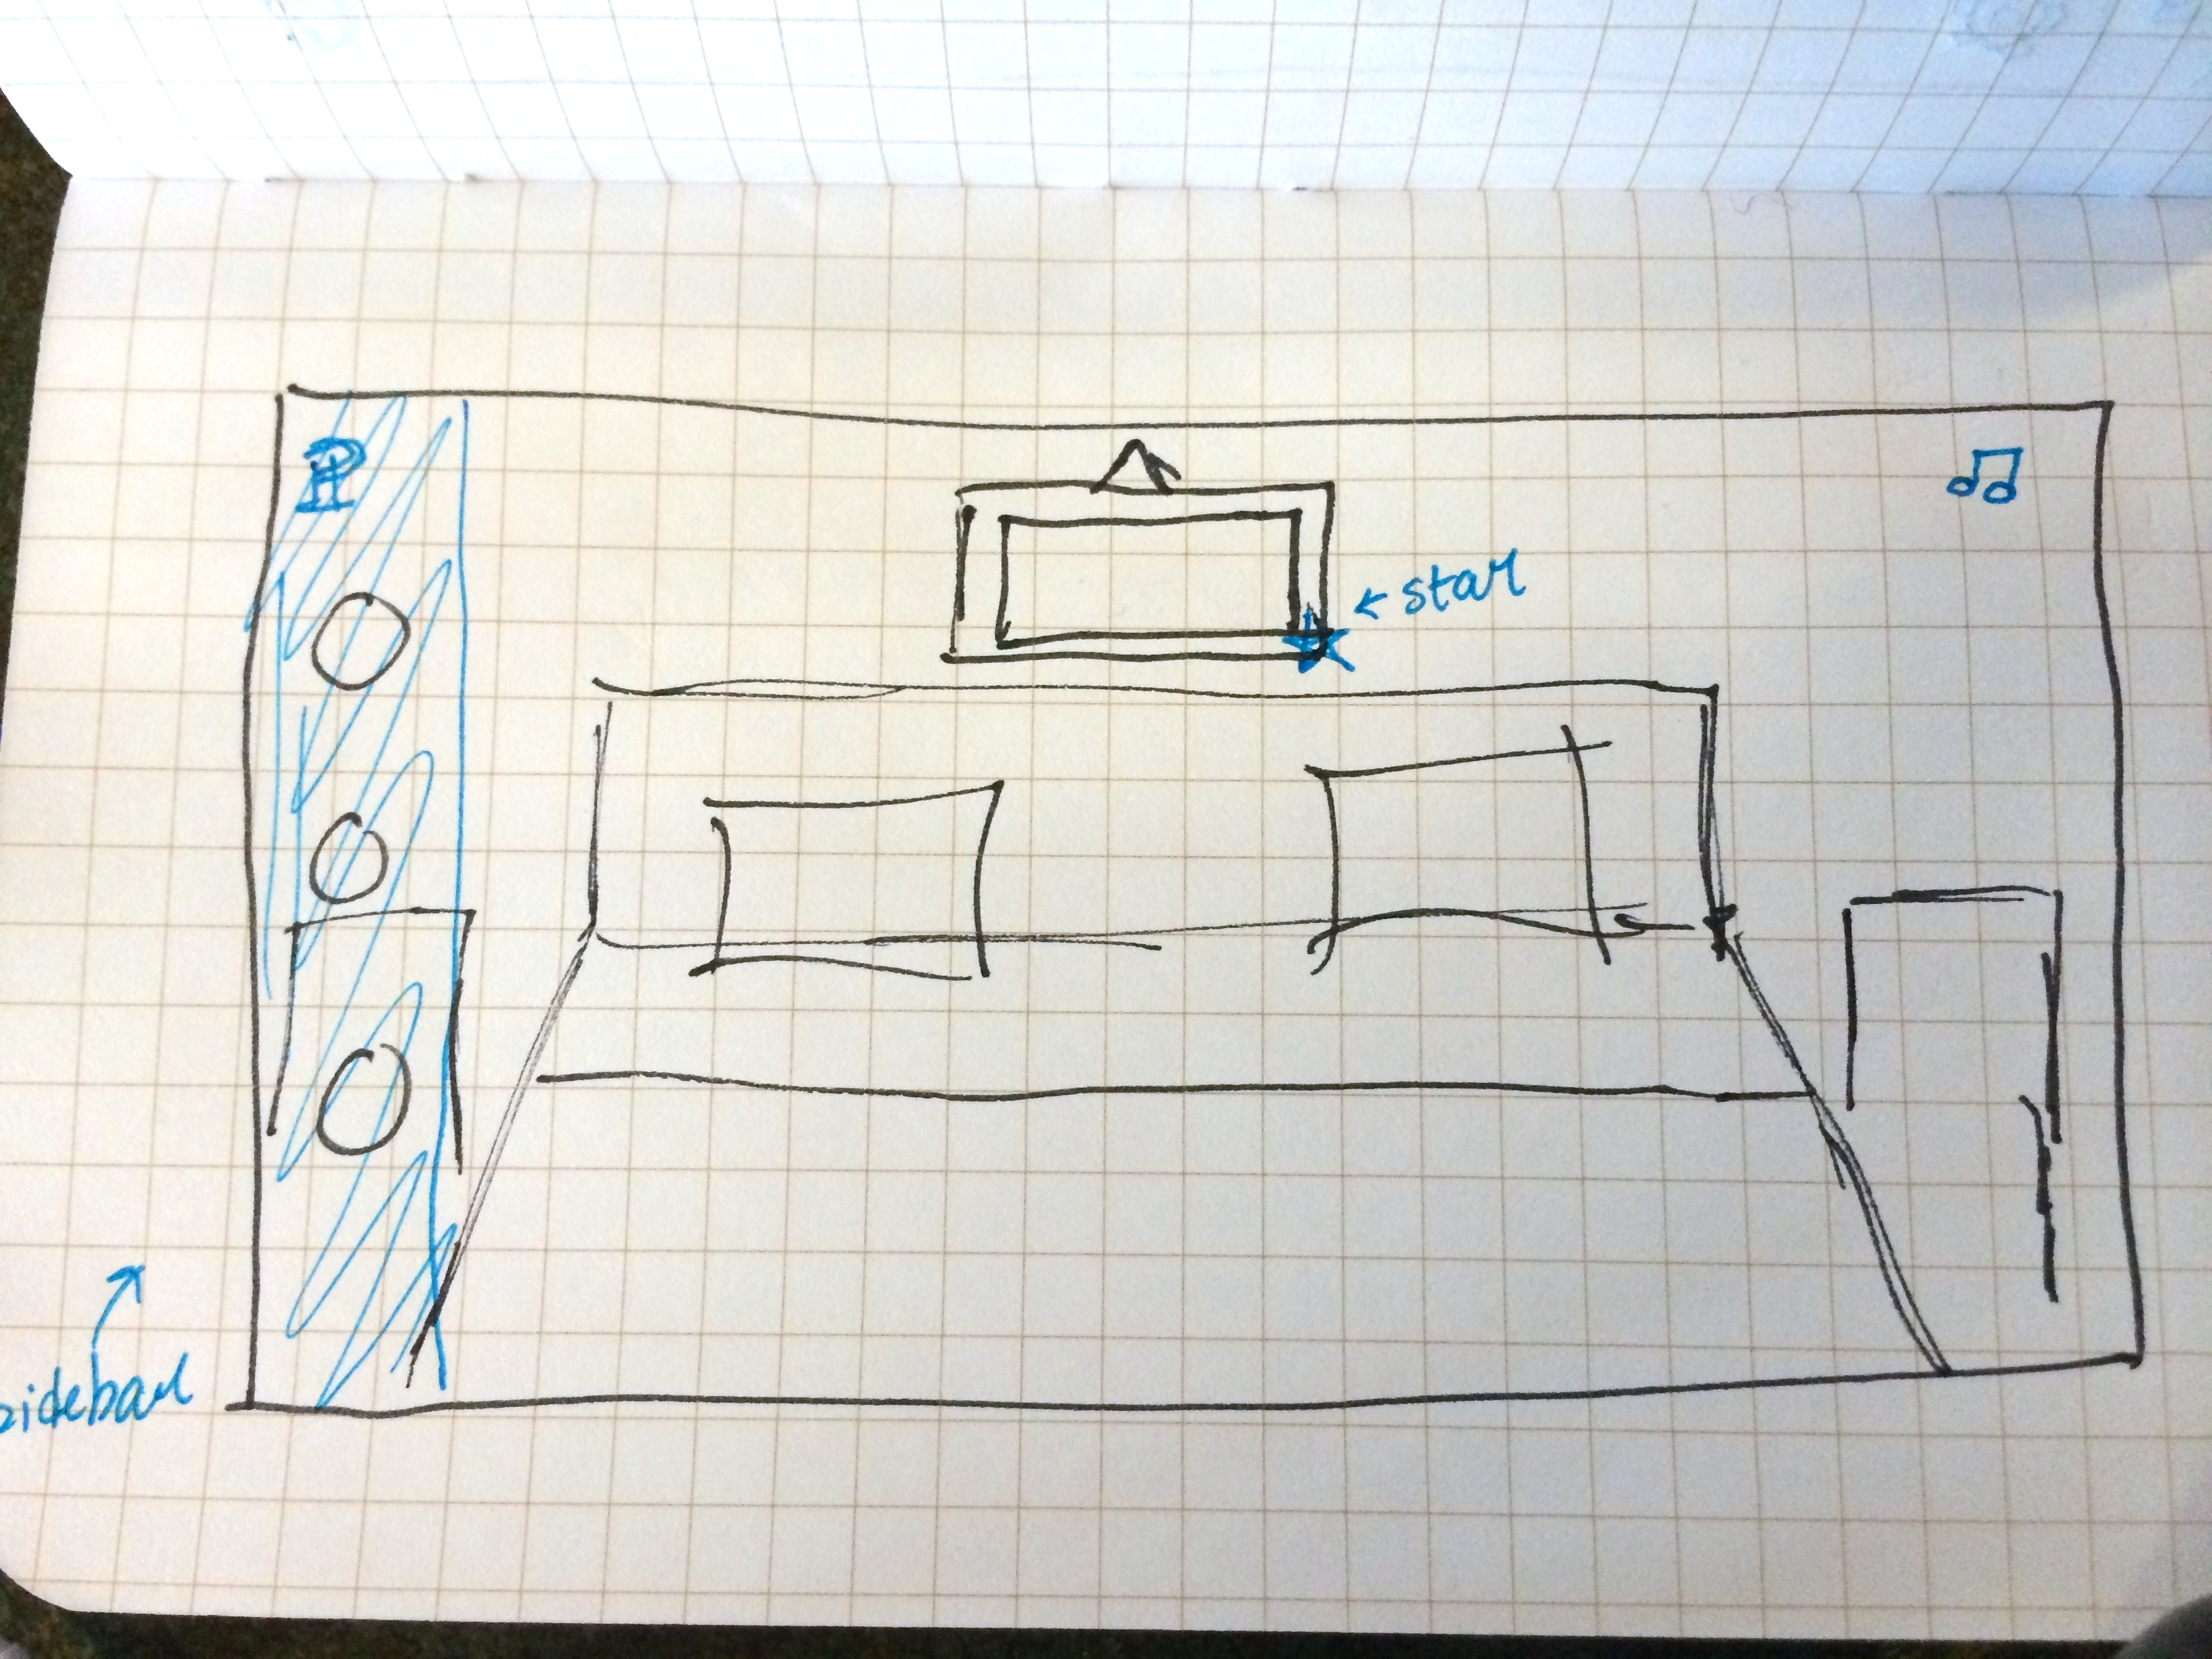 ← star
sidebar